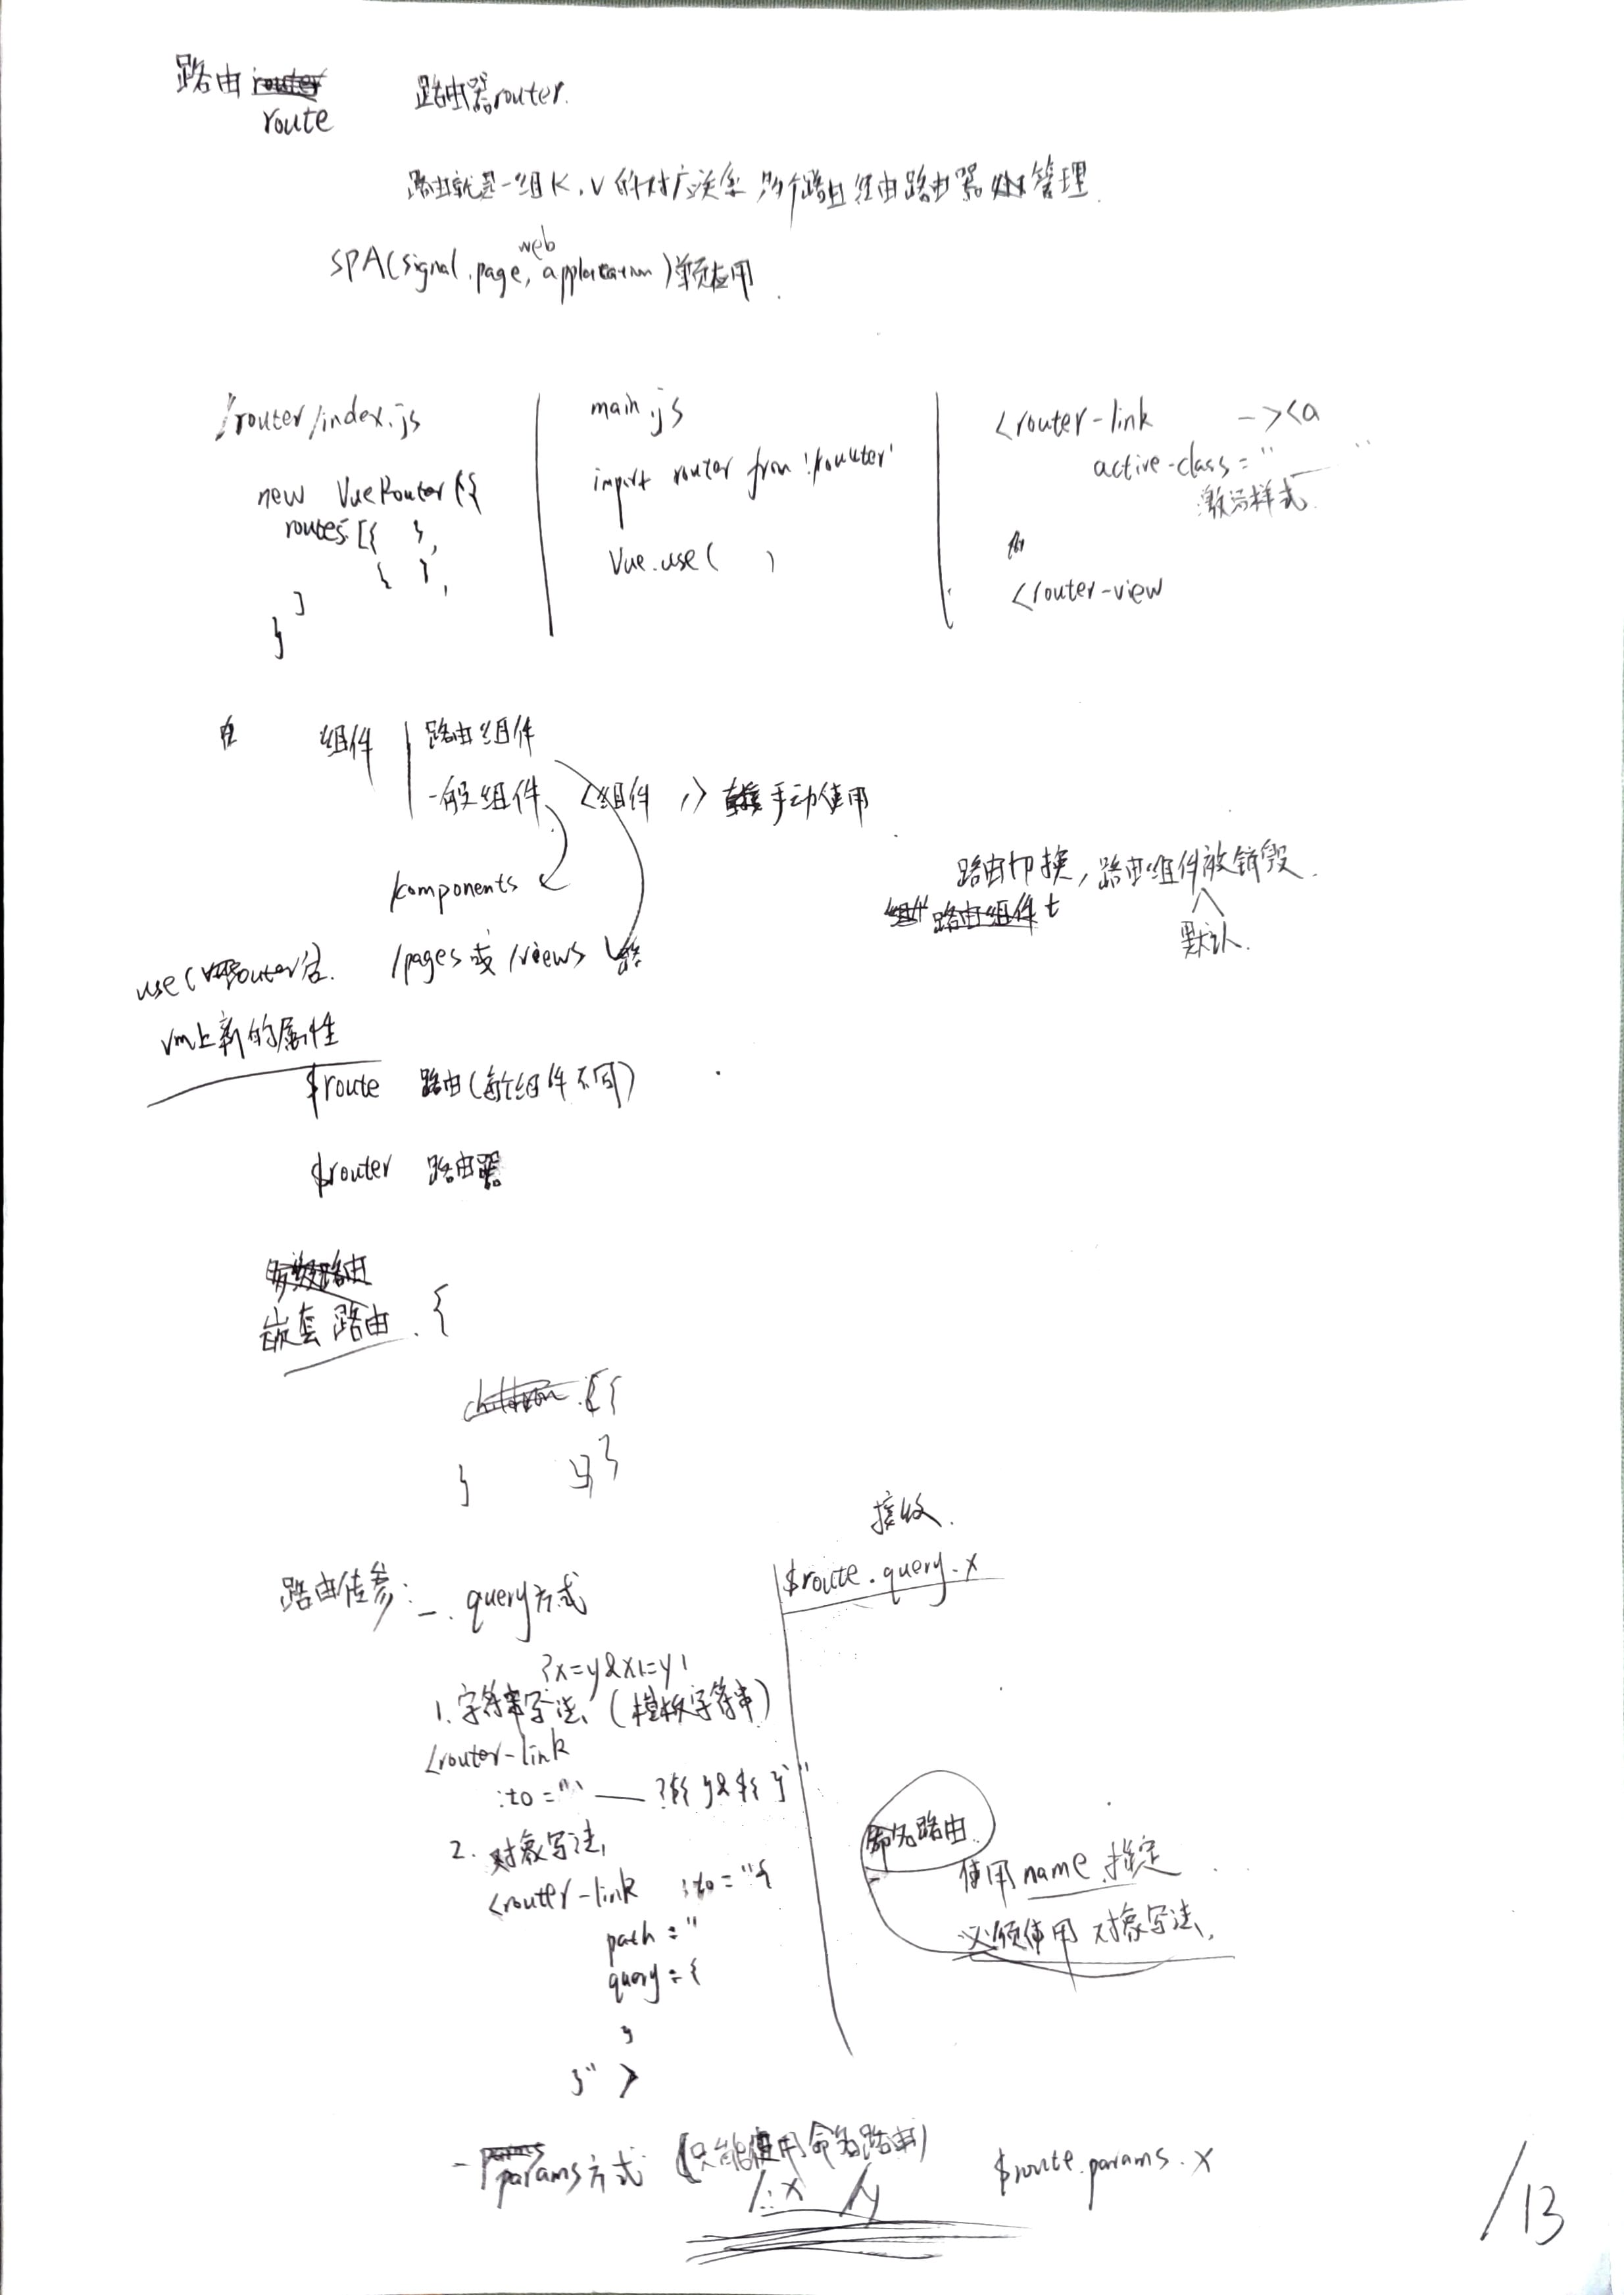 路由 route
路由器router.
路由就是一组K,V的对应关系 多个路由 经由路由器 管理.
web
SPA(signal, page, application)单页应用.
/router/index.js
new VueRouter({
routes:[{ },
{ },
]
}
main.js
import router from './rouuter'
Vue.use( )
<router-link -><a
active-class=" "
激活样式
<router-view
组件 路由组件
一般组件 <组件 /> 手动使用
/components
/pages或/views
路由切换,路由组件被销毁.
默认.
use( Router后.
vm上新的属性
$route 路由(每个组件不同)
$router 路由器
嵌套路由. {
[{
}]
}
路由传参: 一. query方式
接收.
$route.query.x
?x=y&x1=y1
1.字符串写法(模板字符串)
<router-link
:to="` —— ?${ }&${ }`"
2. 对象写法,
<router-link :to="{
path="
query={
}
}" >
命名路由.
使用name.指定
必须使用对象写法,
- params方式 (只能使用命名路由)
/:x /y
$route.params.x
/13